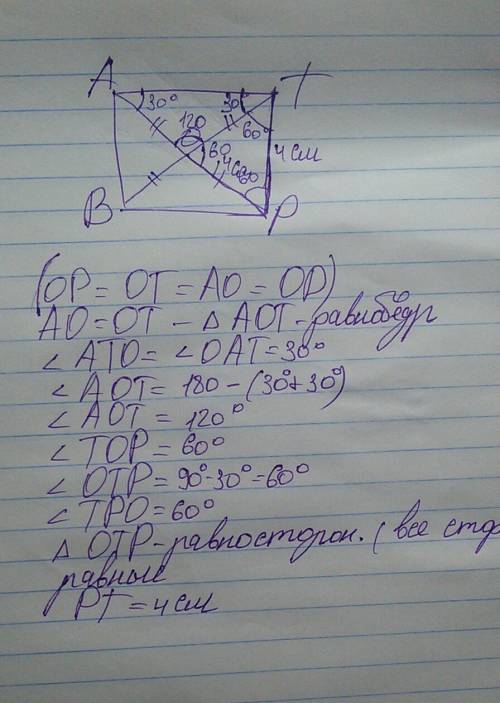 A T
30° 30°
120
60 60°
4 см 60 4 см
B P
(OP = OT = AO = OD)
AO = OT - △ AOT - равнобедр
∠ ATO = ∠ OAT = 30°
∠ AOT = 180 - (30° + 30°)
∠ AOT = 120°
∠ TOP = 60°
∠ OTP = 90° - 30° = 60°
∠ TPO = 60°
△ OTP - равносторон. (все стор
равные
PT = 4 см